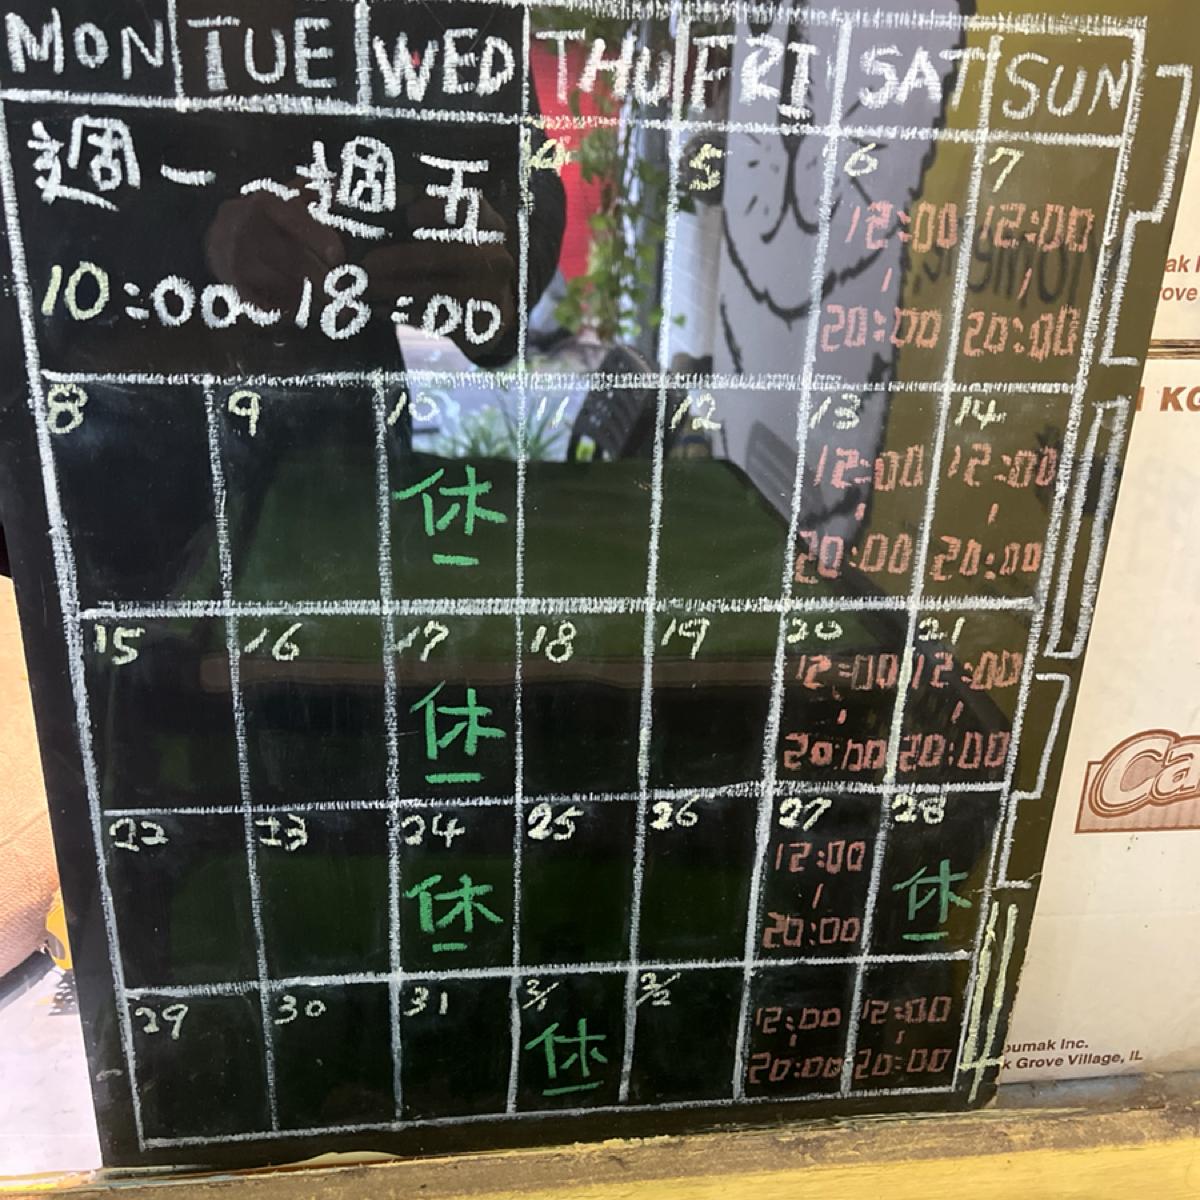 MON TUE WED THU FRI SAT SUN
週一~週五 4 5 6 7
10:00~18:00
12:00 12:00
20:00 20:00
8 9 10 11 12 13 14
休
12:00 12:00
20:00 20:00
15 16 17 18 19 20 21
休
12:00 12:00
20:00 20:00
22 23 24 25 26 27 28
休 12:00 休
20:00
29 30 31 3/1 3/2
休
12:00 12:00
20:00 20:00
KG
Ca
oumak Inc.
k Grove Village, IL